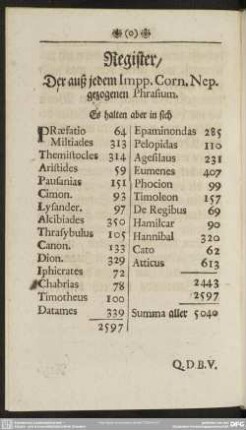 (o)
Register/
Der auß jedem Impp. Corn. Nep.
gezogenen Phrasium.
Es halten aber in sich
PRæfatio 64
Miltiades 313
Themistocles 314
Aristides 59
Pausanias 151
Cimon. 93
Lysander. 97
Alcibiades 350
Thrasybulus 105
Canon. 133
Dion. 329
Iphicrates 72
Chabrias 78
Timotheus 100
Datames 339
2597
Epaminondas 285
Pelopidas 110
Agesilaus 231
Eumenes 407
Phocion 99
Timoleon 157
De Regibus 69
Hamilcar 90
Hannibal 320
Cato 62
Atticus 613
2443
2597
Summa aller 5040
Q. D B. V.